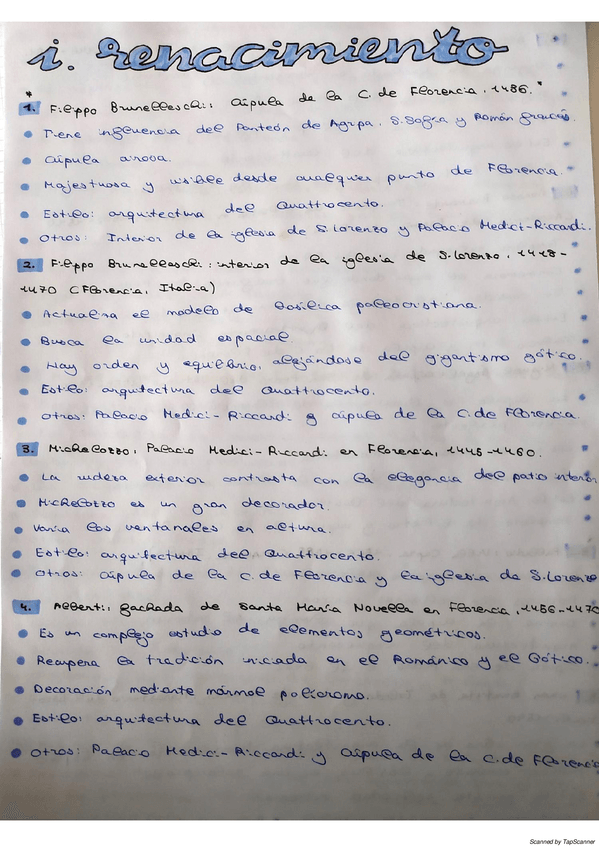 i. renacimiento
1. Filippo Brunelleschi: cúpula de la C. de Florencia, 1436.
Tiene influencia del Panteón de Agripa, S. Sofía y Román francés.
Cúpula airosa.
Majestuosa y visible desde cualquier punto de Florencia.
Estilo: arquitectura del Quattrocento.
Otros: Interior de la iglesia de S. Lorenzo y Palacio Medici-Riccardi.
2. Filippo Brunelleschi: interior de la iglesia de S. Lorenzo, 1418-
1470 (Florencia, Italia)
Actualiza el modelo de basílica paleocristiana.
Busca la unidad espacial.
Hay orden y equilibrio, alejándose del gigantismo gótico.
Estilo: arquitectura del Quattrocento.
Otros: Palacio Medici-Riccardi y cúpula de la C. de Florencia
3. Michelozzo, Palacio Medici-Riccardi en Florencia, 1445-1460.
La rudeza exterior contrasta con la elegancia del patio interior
Michelozzo es un gran decorador.
Varía los ventanales en altura.
Estilo: arquitectura del Quattrocento.
Otros: cúpula de la C. de Florencia y la iglesia de S. Lorenzo
4. Alberti, fachada de Santa María Novella en Florencia, 1456-1470
Es un complejo estudio de elementos geométricos.
Recupera la tradición iniciada en el Románico y el Gótico.
Decoración mediante mármol polícromo.
Estilo: arquitectura del Quattrocento.
Otros: Palacio Medici-Riccardi y cúpula de la C. de Florencia
Scanned by TapScanner